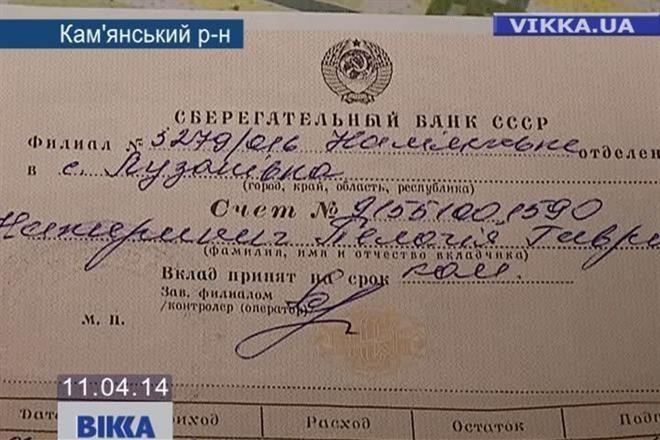 Кам'янський р-н
VIKKA.UA
СБЕРЕГАТЕЛЬНЫЙ БАНК СССР
Филиал № 3279/016 отделен
в с. Лузанівка
(город, край, область, республика)
Счет №
Пелагія Гаври
(фамилия, имя и отчество вкладчика)
Вклад принят на срок
Зав. филиалом
/контролер (оператор)
М. П.
11.04.14
ВІККА
Дата Приход Расход Остаток Подп